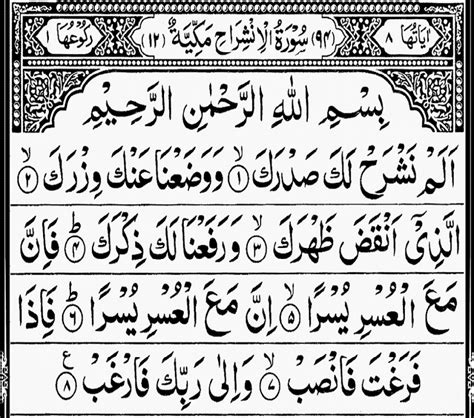 اٰيَاتُهَا ٨ (٩٤) سُوْرَةُ الْاِنْشِرَاحِ مَكِّيَّةٌ (١٢) رُكُوْعُهَا ١
بِسْمِ اللّٰهِ الرَّحْمٰنِ الرَّحِيْمِ
اَلَمْ نَشْرَحْ لَكَ صَدْرَكَ ۙ‏﴿۱﴾ وَوَضَعْنَا عَنْكَ وِزْرَكَ ۙ‏﴿۲﴾
الَّذِيْۤ اَنْقَضَ ظَهْرَكَ ۙ‏﴿۳﴾ وَرَفَعْنَا لَكَ ذِكْرَكَ ؕ‏﴿۴﴾ فَاِنَّ
مَعَ الْعُسْرِ يُسْرًا ۙ‏﴿۵﴾ اِنَّ مَعَ الْعُسْرِ يُسْرًا ؕ‏﴿۶﴾ فَاِذَا
فَرَغْتَ فَانْصَبْ ۙ‏﴿۷﴾ وَاِلٰى رَبِّكَ فَارْغَبْ ﴿۸﴾ ع